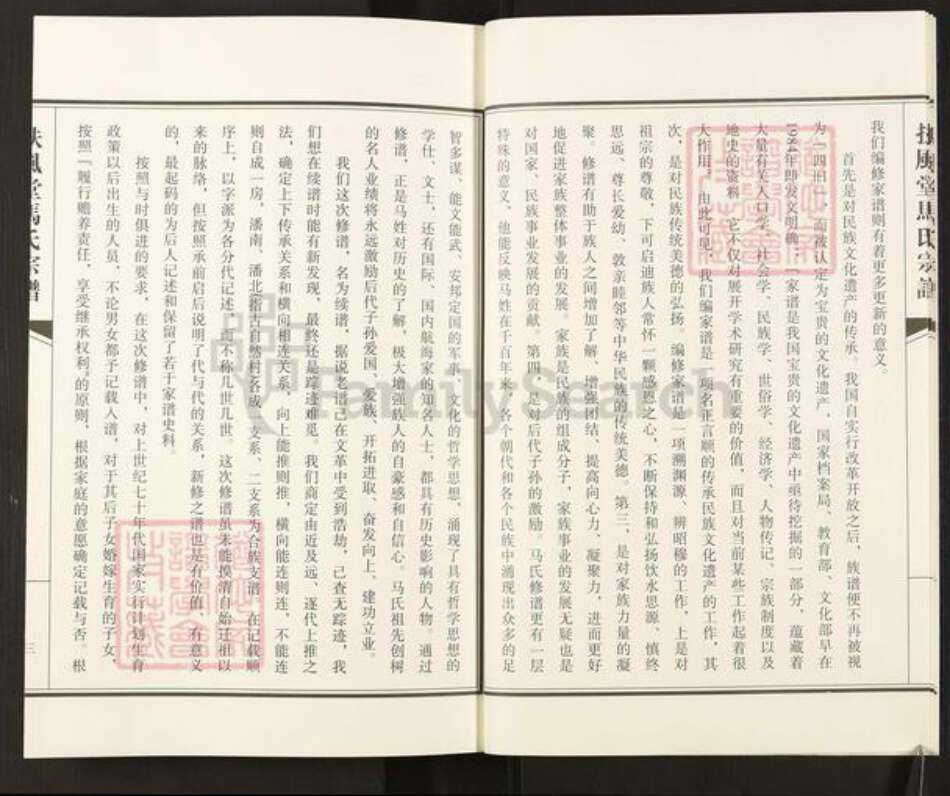 扶風堂馬氏宗譜
我们编修家谱则有着更多更新的意义。
首先是对民族文化遗产的传承。我国自实行改革开放之后，族谱便不再被视
为“四旧”，而被认定为宝贵的文化遗产，国家档案局、教育部、文化部早在
1984年即发文明确：“家谱是我国宝贵的文化遗产中亟待挖掘的一部分，蕴藏着
大量有关人口学、社会学、民族学、世俗学、经济学、人物传记、宗族制度以及
地史的资料，它不仅对展开学术研究有重要的价值，而且对当前某些工作起着很
大作用。”由此可见，我们编家谱是一项名正言顺的传承民族文化遗产的工作，其
次，是对民族传统美德的弘扬。编修家谱是一项溯渊源、辨昭穆的工作，上是对
祖宗的尊敬，下可启迪族人常怀一颗感恩之心，不断保持和弘扬饮水思源，慎终
思远、尊长爱幼、敦亲睦邻等中华民族的传统美德。第三，是对家族力量的凝
聚。修谱有助于族人之间增加了解、增强团结、提高向心力、凝聚力，进而更好
地促进家族整体事业的发展。家族是民族的组成分子，家族事业的发展无疑也是
对国家、民族事业发展的贡献。第四，是对后代子孙的激励。马氏修谱更有一层
特殊的意义，他能反映马姓在千百年来，各个朝代和各个民族中涌现出众多的足
智多谋、能文能武、安邦定国的军事、文化的哲学思想，涌现了具有哲学思想的
学仕、文士，还有国际、国内航海家的知名人士，都具有历史影响的人物。通过
修谱，正是马姓对历史的了解，极大增强族人的自豪感和自信心。马氏祖先创树
的名人业绩将永远激励后代子孙爱国、爱族、开拓进取、奋发向上、建功立业。
我们这次修谱，名为续谱，据说老谱已在文革中受到浩劫，已查无踪迹，我
们想在续谱时能有新发现，最终还是踪迹难觅。我们商定由近及远、逐代上推之
法，确定上下传承关系和横向相连关系，向上能推则推，横向能连则连，不能连
则自成一房，潘南、潘北(指古自然村)各成一支系、二支系为合族支谱，在记载顺
序上，以字派为各分代记述，而不称几世几世。这次修谱虽未能摸清自始迁祖以
来的脉络，但按照承前启后说明了代与代的关系，新修之谱也是有价值、有意义
的，最起码的为后人记述和保留了若干家谱史料。
按照与时俱进的要求，在这次修谱中，对上世纪七十年代国家实行计划生育
政策以后出生的人员，不论男女都予记载入谱，对于其后子女婚嫁生育的子女，
按照“履行赡养责任，享受继承权利”的原则，根据家庭的意愿确定记载与否。根
扶風堂馬氏宗譜
三
FamilySearch